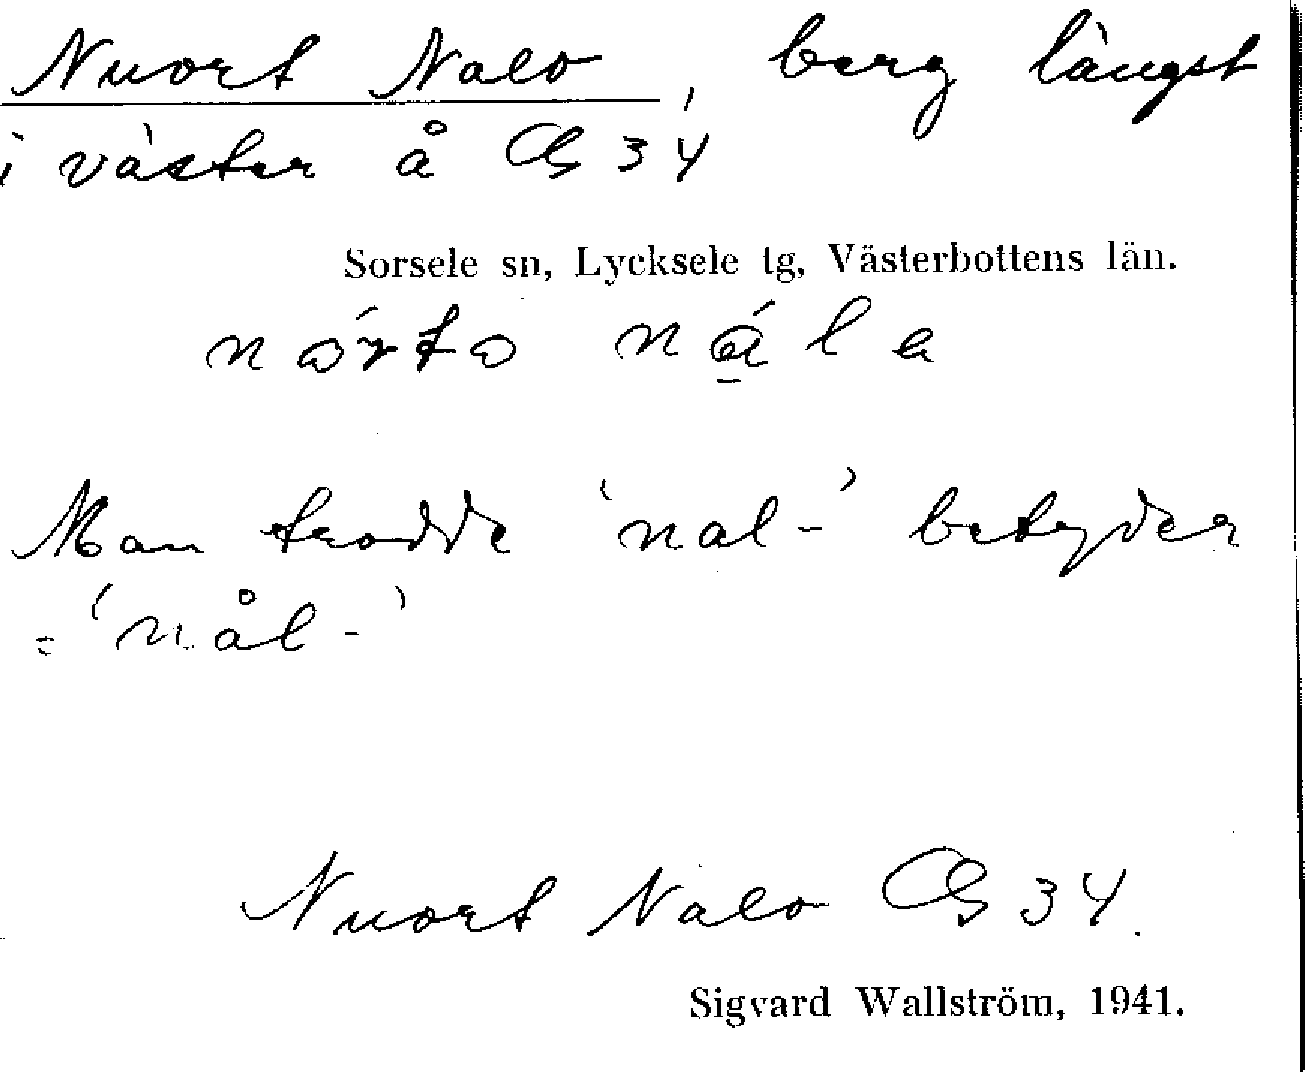 Nuort Nalo, berg längst
i väster å GS 34
Sorsele sn, Lycksele tg, Västerbottens län.
Man trodde 'nal-' betyder
= 'nål-'
Nuort Nalo GS 34.
Sigvard Wallström, 1941.